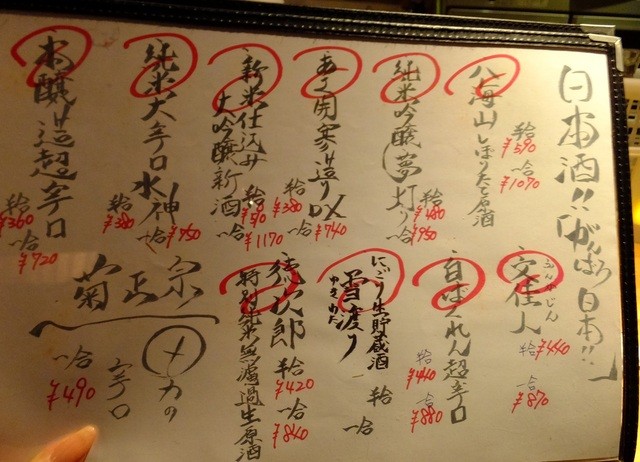 日本酒!!「がんばろう日本!!」
八海山しぼりたて原酒
半合 ¥590
一合 ¥1070
純米吟醸(夢灯り)
半合 ¥480
一合 ¥950
あさ開寒造りDX
半合 ¥380
一合 ¥740
新米仕込み
大吟醸新酒
半合 ¥590
一合 ¥1170
純米大辛口水神
半合 ¥380
一合 ¥750
本醸造超辛口
半合 ¥360
一合 ¥720
文佳人
ぶんかじん
半合 ¥440
一合 ¥870
百ばくれん超辛口
半合 ¥440
一合 ¥880
にごり生貯蔵酒
雪渡り
ゆきわたり
半合
一合
徳次郎
特別純米無濾過生原酒
半合 ¥420
一合 ¥840
菊正宗
メ力の
辛口
一合
¥490